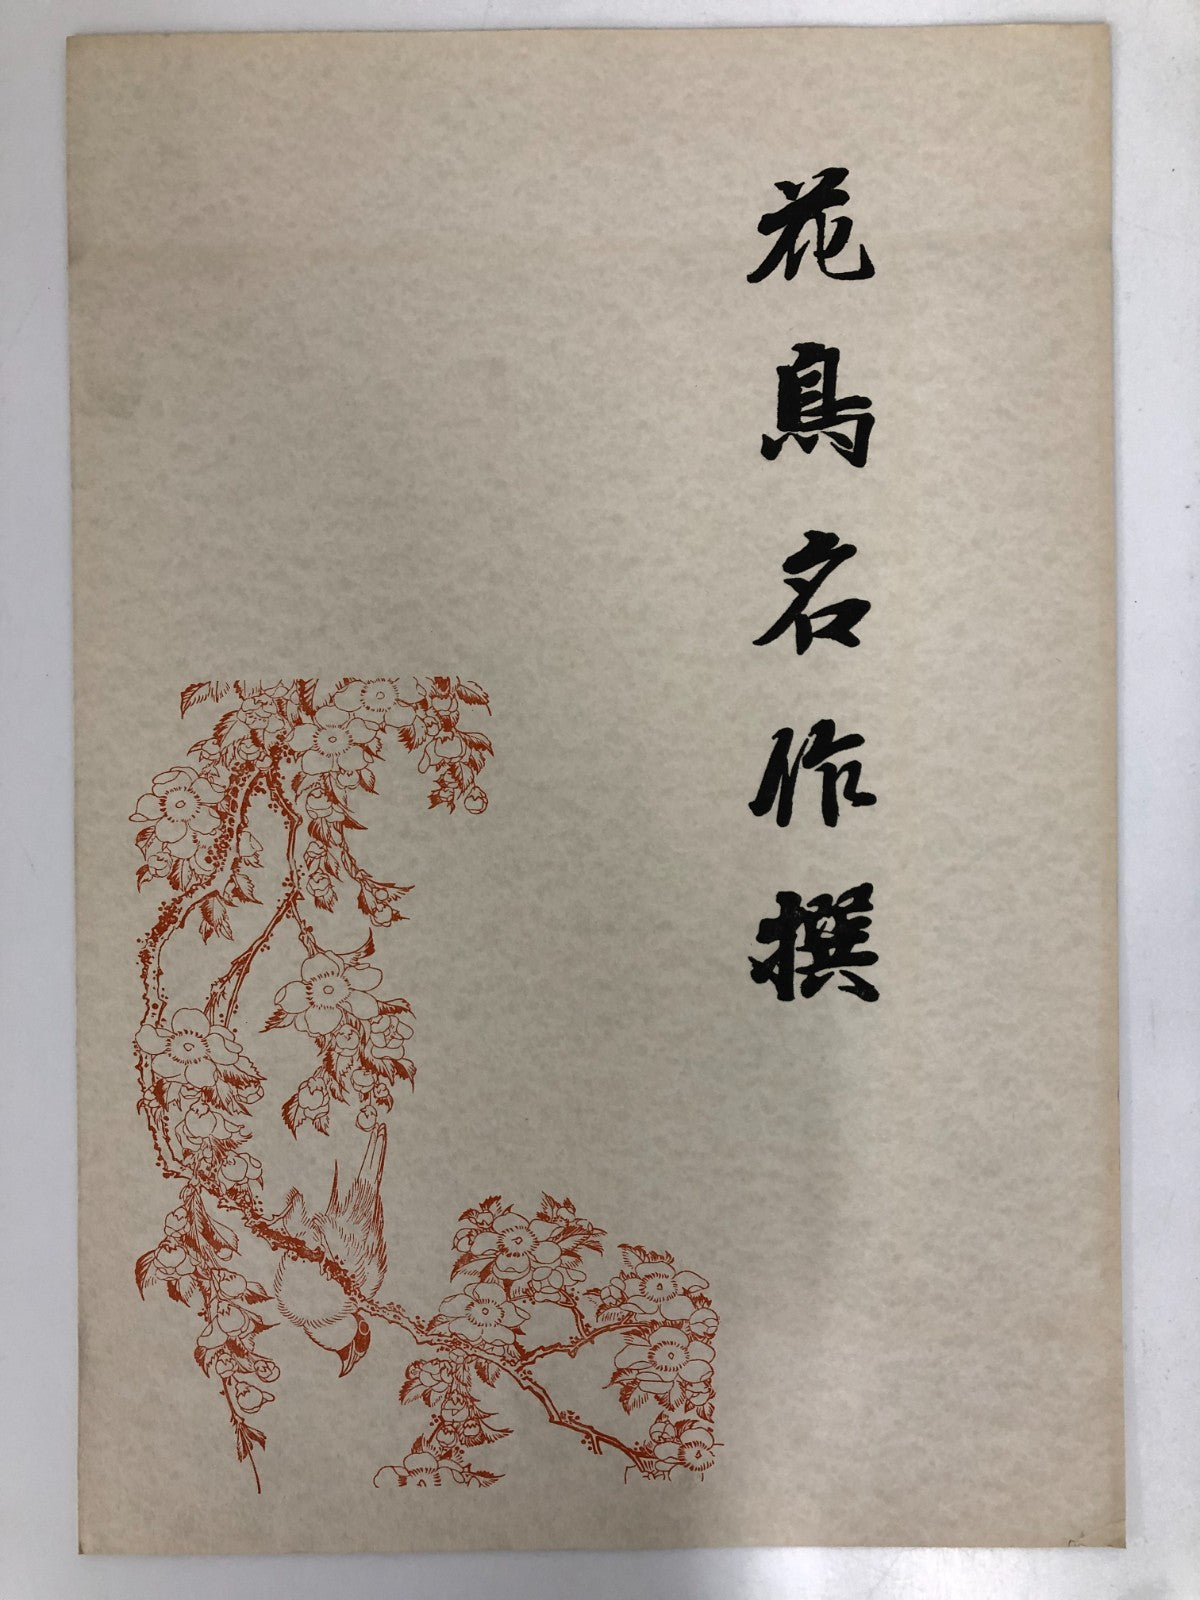 花鳥名作撰